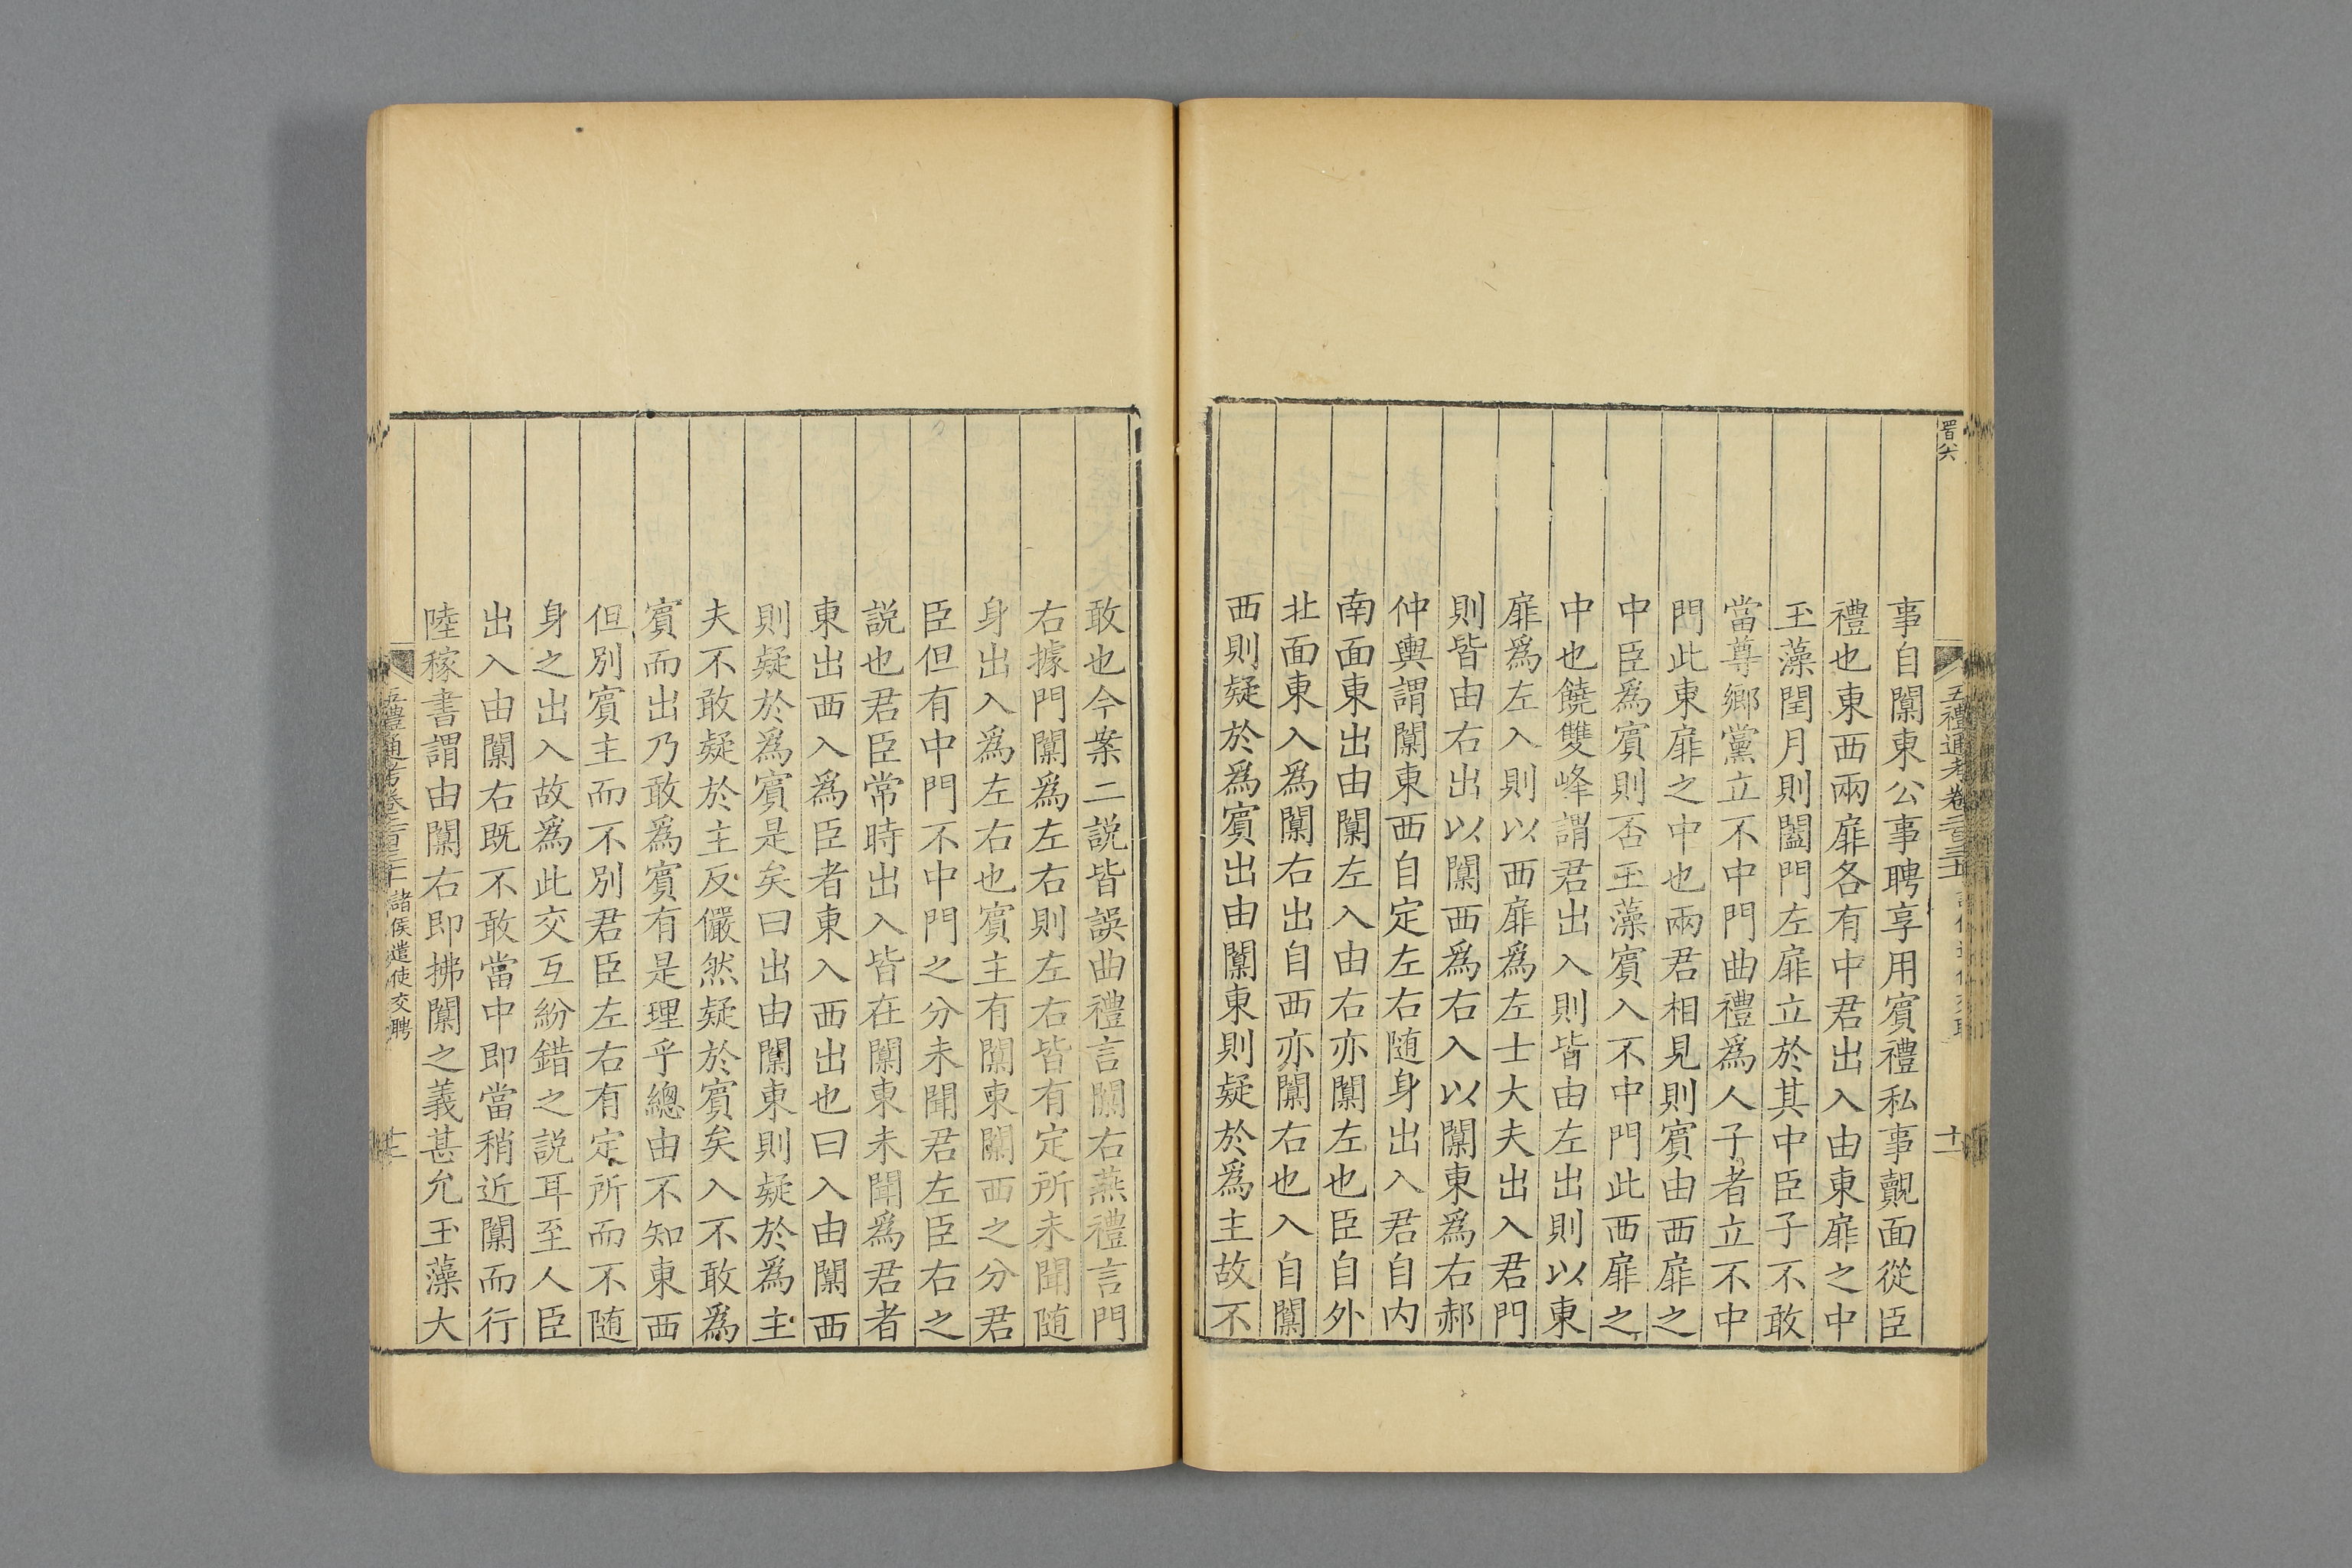 五禮通考卷二百三十 十一
事自闑東公事聘享用賓禮私事覿面從臣
禮也東西兩扉各有中君出入由東扉之中
玉藻閏月則闔門左扉立於其中臣子不敢
當尊鄉黨立不中門曲禮爲人子者立不中
門此東扉之中也兩君相見則賓由西扉之
中臣爲賓則否玉藻賓入不中門此西扉之
中也饒雙峰謂君出入則皆由左出則以東
扉爲左入則以西扉爲左士大夫出入君門
則皆由右出以闑西爲右入以闑東爲右郝
仲輿謂闑東西自定左右随身出入君自内
南面東出由闑左入由右亦闑左也臣自外
北面東入爲闑右出自西亦闑右也入自闑
西則疑於爲賓出由闑東則疑於爲主故不
敢也今案二説皆誤曲禮言闑右燕禮言門
右據門闑爲左右則左右皆有定所未聞随
身出入爲左右也賓主有闑東闑西之分君
臣但有中門不中門之分未聞君左臣右之
説也君臣常時出入皆在闑東未聞爲君者
東出西入爲臣者東入西出也曰入由闑西
則疑於爲賓是矣曰出由闑東則疑於爲主
夫不敢疑於主反儼然疑於賓矣入不敢爲
賓而出乃敢爲賓有是理乎總由不知東西
但別賓主而不別君臣左右有定所而不随
身之出入故爲此交互紛錯之説耳至人臣
出入由闑右既不敢當中即當稍近闑而行
陸稼書謂由闑右即拂闑之義甚允玉藻大
五禮通考卷二百三十 諸侯遣使交聘 十二